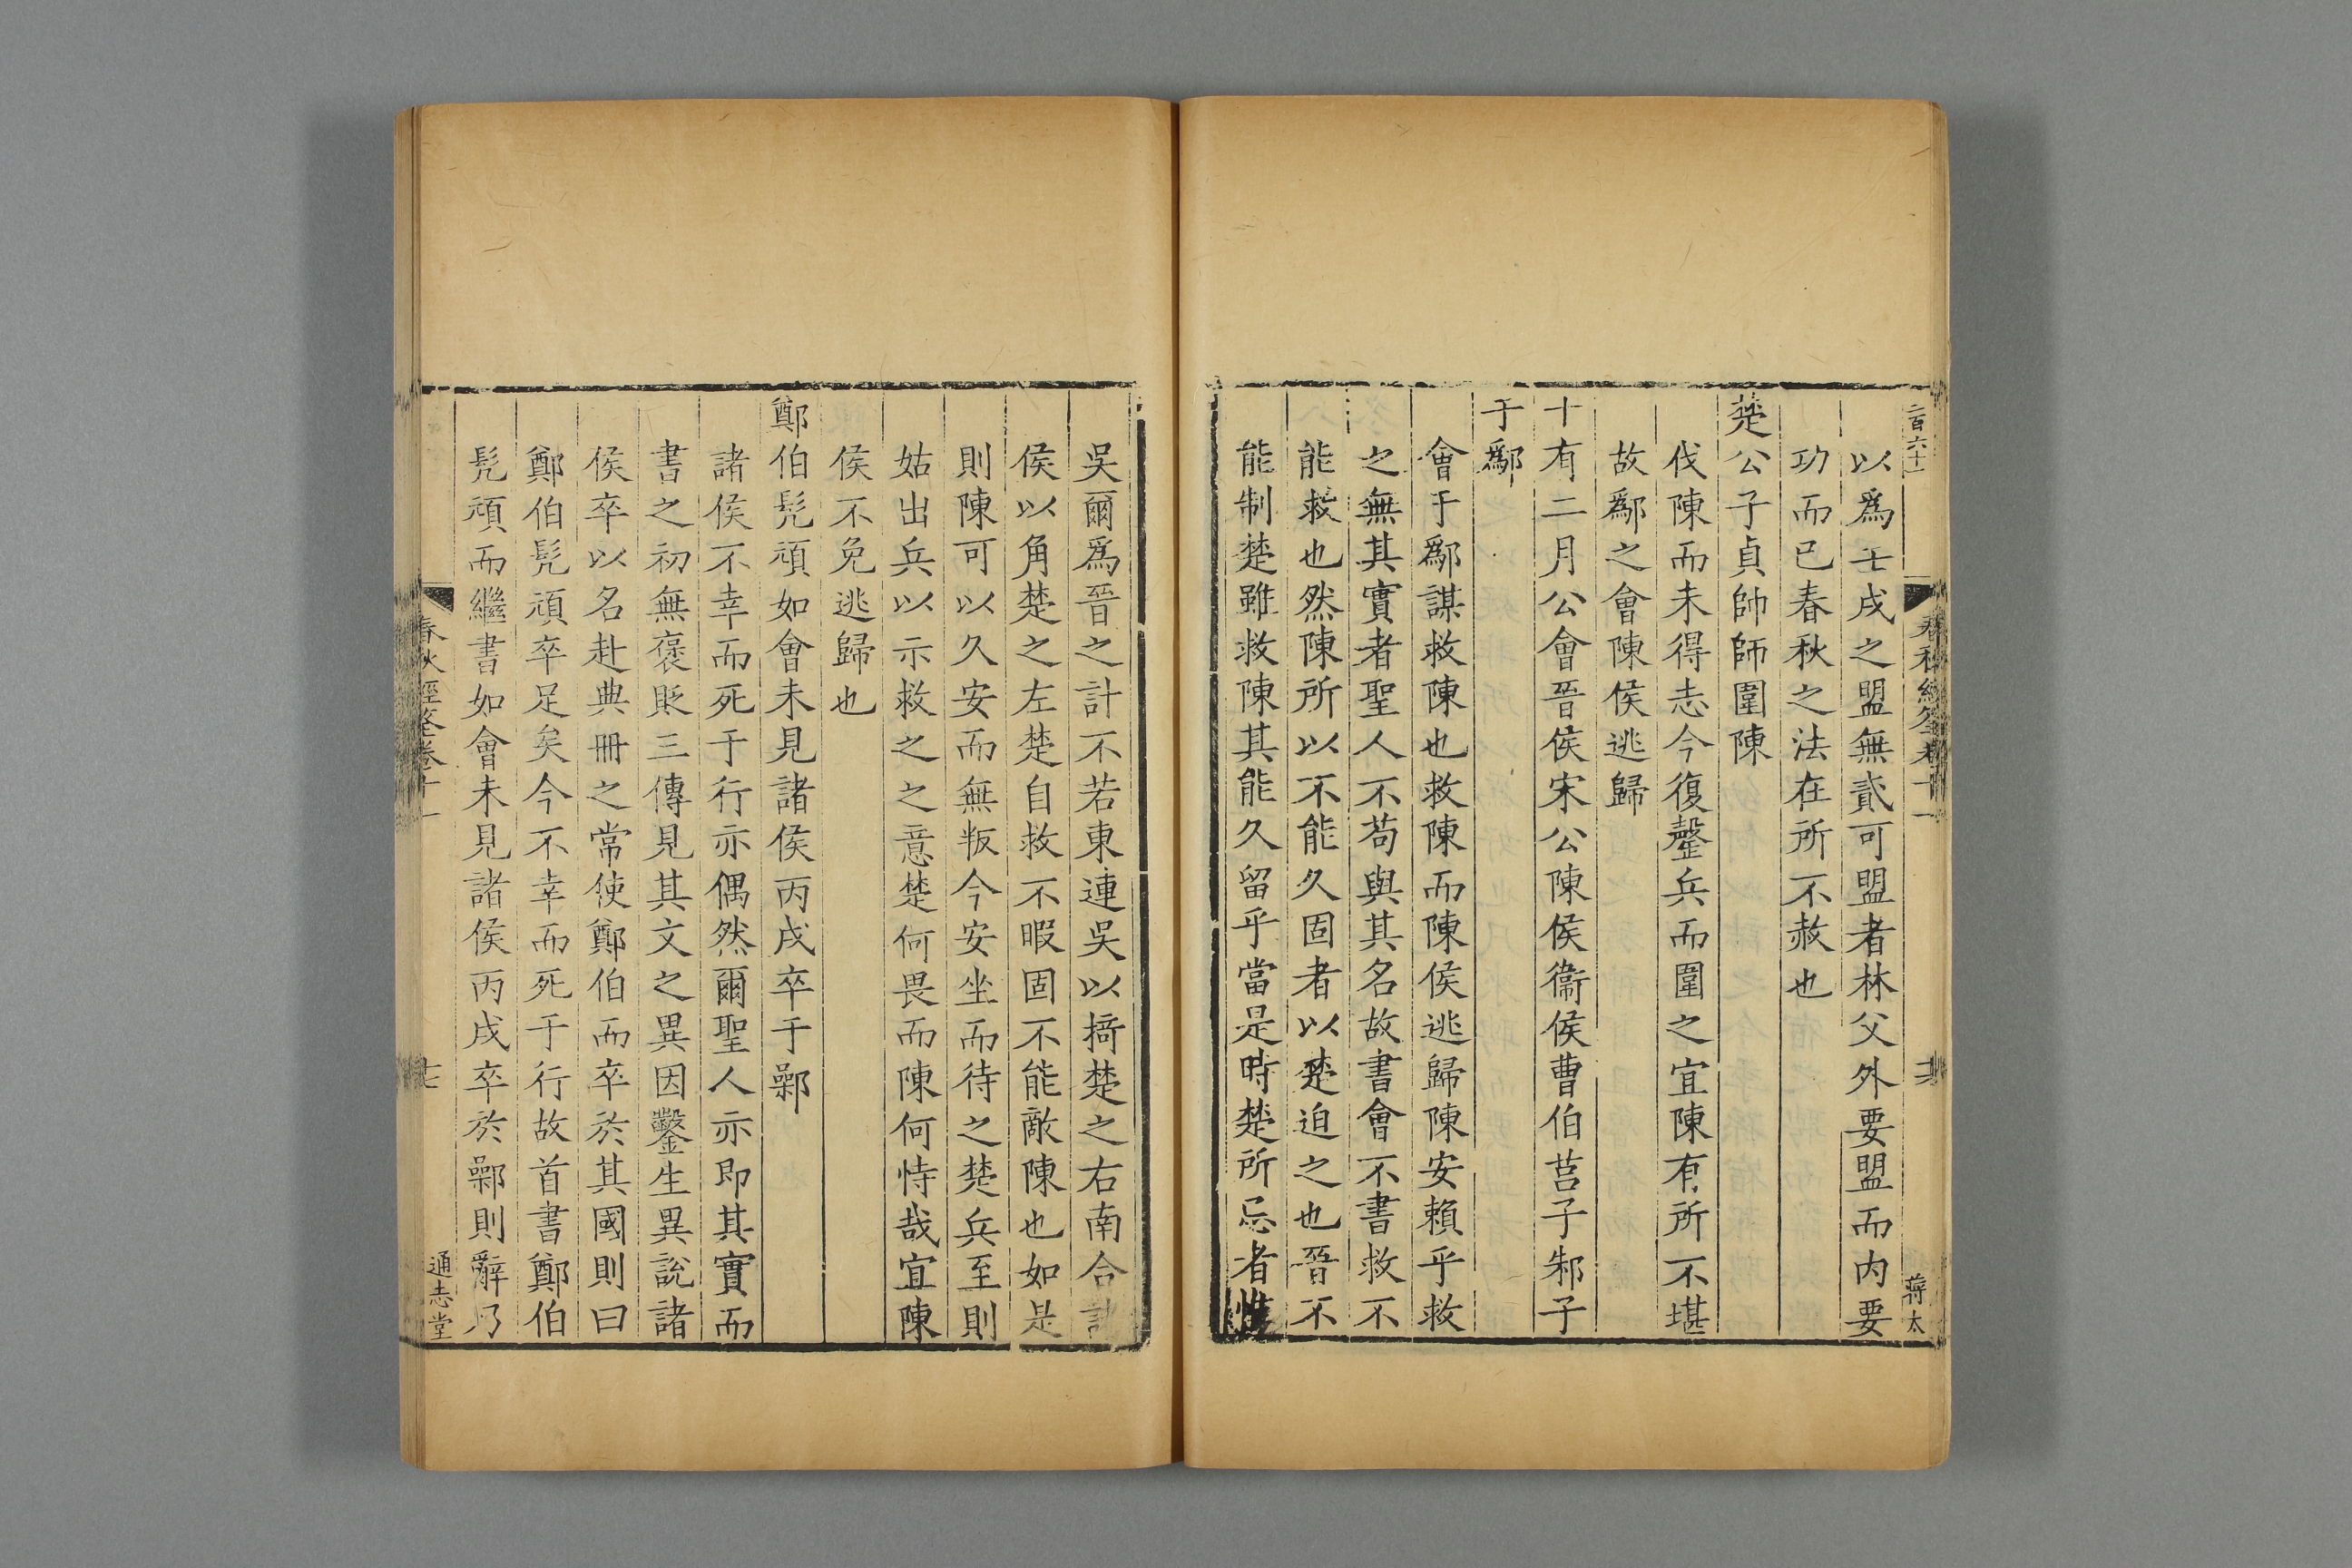 二百六十
春秋經筌卷十一
蔣太
以爲壬戌之盟無貳可盟者林父外要盟而内要
功而已春秋之法在所不赦也
楚公子貞帥師圍陳
伐陳而未得志今復罄兵而圍之宜陳有所不堪
故鄬之會陳侯逃歸
十有二月公會晉侯宋公陳侯衞侯曹伯莒子邾子
于鄬
會于鄬謀救陳也救陳而陳侯逃歸陳安賴乎救
之無其實者聖人不苟與其名故書會不書救不
能救也然陳所以不能久固者以楚迫之也晉不
能制楚雖救陳其能久留乎當是時楚所忌者惟
吳爾爲晉之計不若東連吳以掎楚之右南合諸
侯以角楚之左楚自救不暇固不能敵陳也如是
則陳可以久安而無叛今安坐而待之楚兵至則
姑出兵以示救之之意楚何畏而陳何恃哉宜陳
侯不免逃歸也
鄭伯髠頑如會未見諸侯丙戌卒于鄵
諸侯不幸而死于行亦偶然爾聖人亦即其實而
書之初無褒貶三傳見其文之異因鑿生異說諸
侯卒以名赴典冊之常使鄭伯而卒於其國則曰
鄭伯髠頑卒足矣今不幸而死于行故首書鄭伯
髠頑而繼書如會未見諸侯丙戌卒於鄵則辭乃
春秋經筌卷十一
十七
通志堂